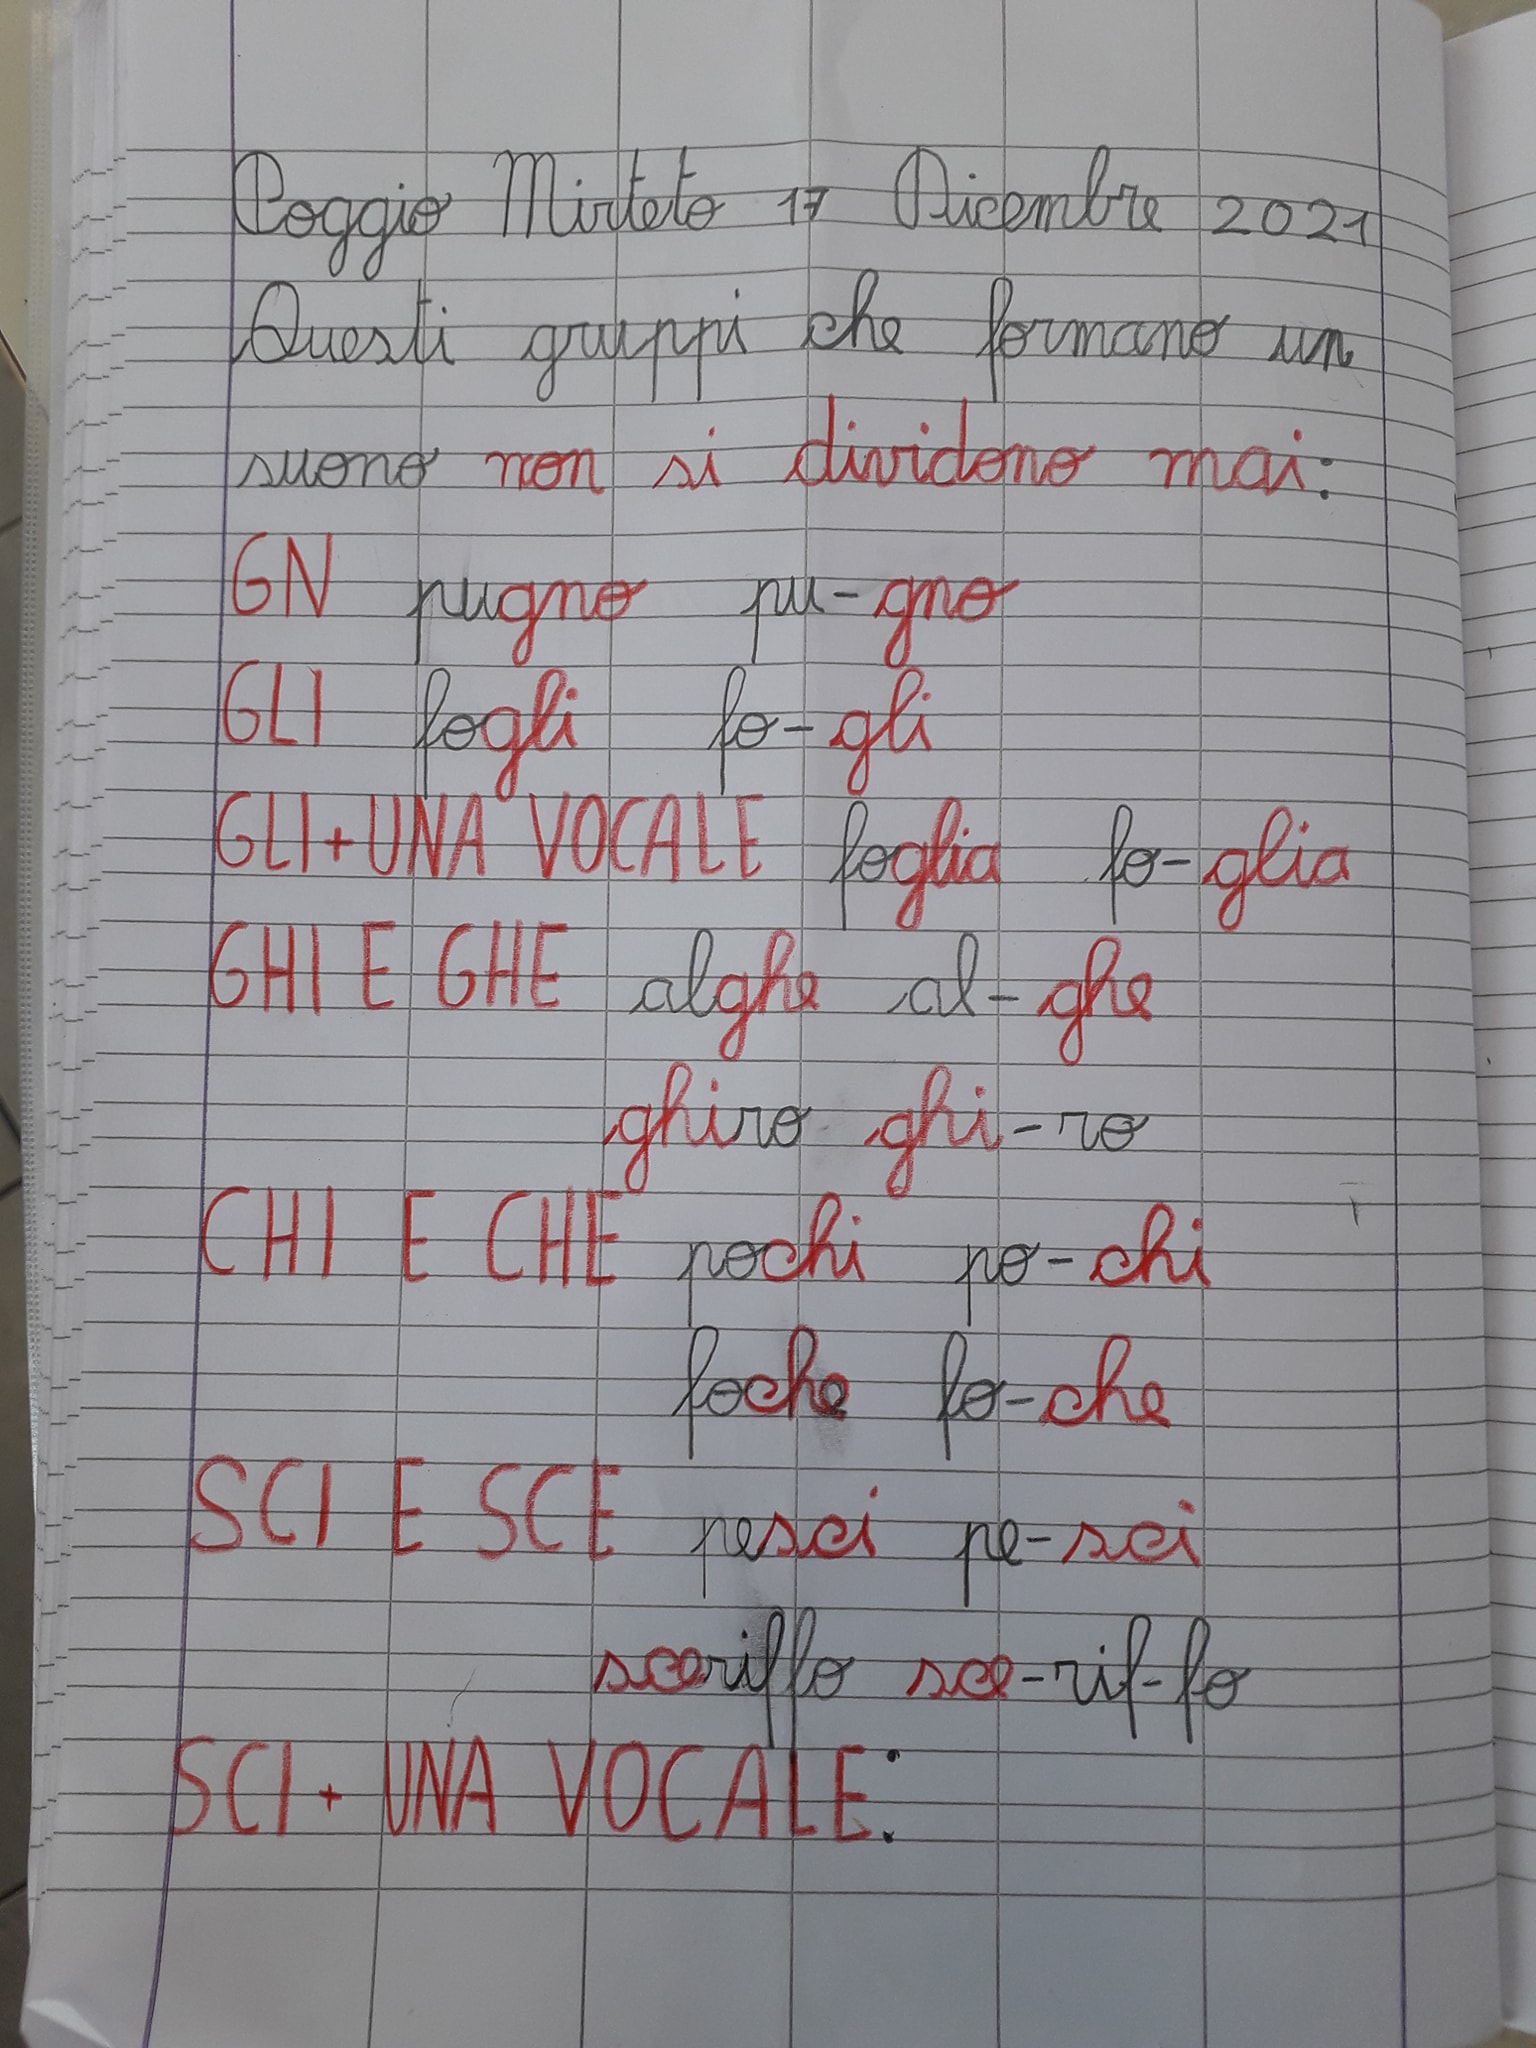 Poggio Mirteto 17 Dicembre 2021
Questi gruppi che formano un
suono non si dividono mai:
GN pugno pu-gno
GLI fogli fo-gli
GLI+UNA VOCALE foglia fo-glia
GHI E GHE alghe al-ghe
ghiro ghi-ro
CHI E CHE pochi po-chi
foche fo-che
SCI E SCE pesci pe-sci
sceriffo sce-rif-fo
SCI+ UNA VOCALE: